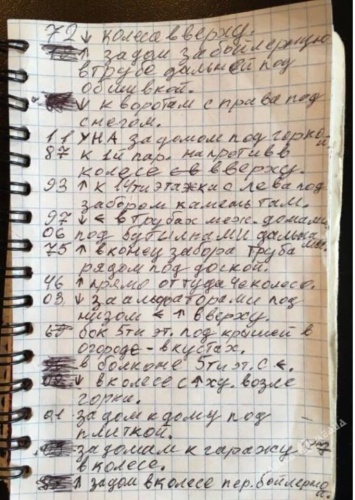 72 ↓ колеса в верху.
↑ за дом за бойлерную
в трубе дальней под
обшивкой.
↓ к воротам с права под
снегом.
11 УНА за домом под горкой
87 к 1й пар. на против в
колесе в верху.
93 ↑ к 1 4ти этажка с лева под
забором камешь там.
97 ↓ ← в трубах меж. домами
06 под бутылками дальна
75 ↑ в конец забора труба
рядом под доской.
46 ↑ прямо от туда че колесо.
03 ↓ за альфаторами под
низом ← ↑ в верху.
67 бок 5ти эт. под крышей в
огороде - в кустах.
в болконе 5ти эт. с ←.
↓ в колесе с ↑ ху. возле
горки.
01 за дом к дому под
плиткой.
за домам к гаражу
в колесе.
↑ за дом в колесе пер. бойлерна